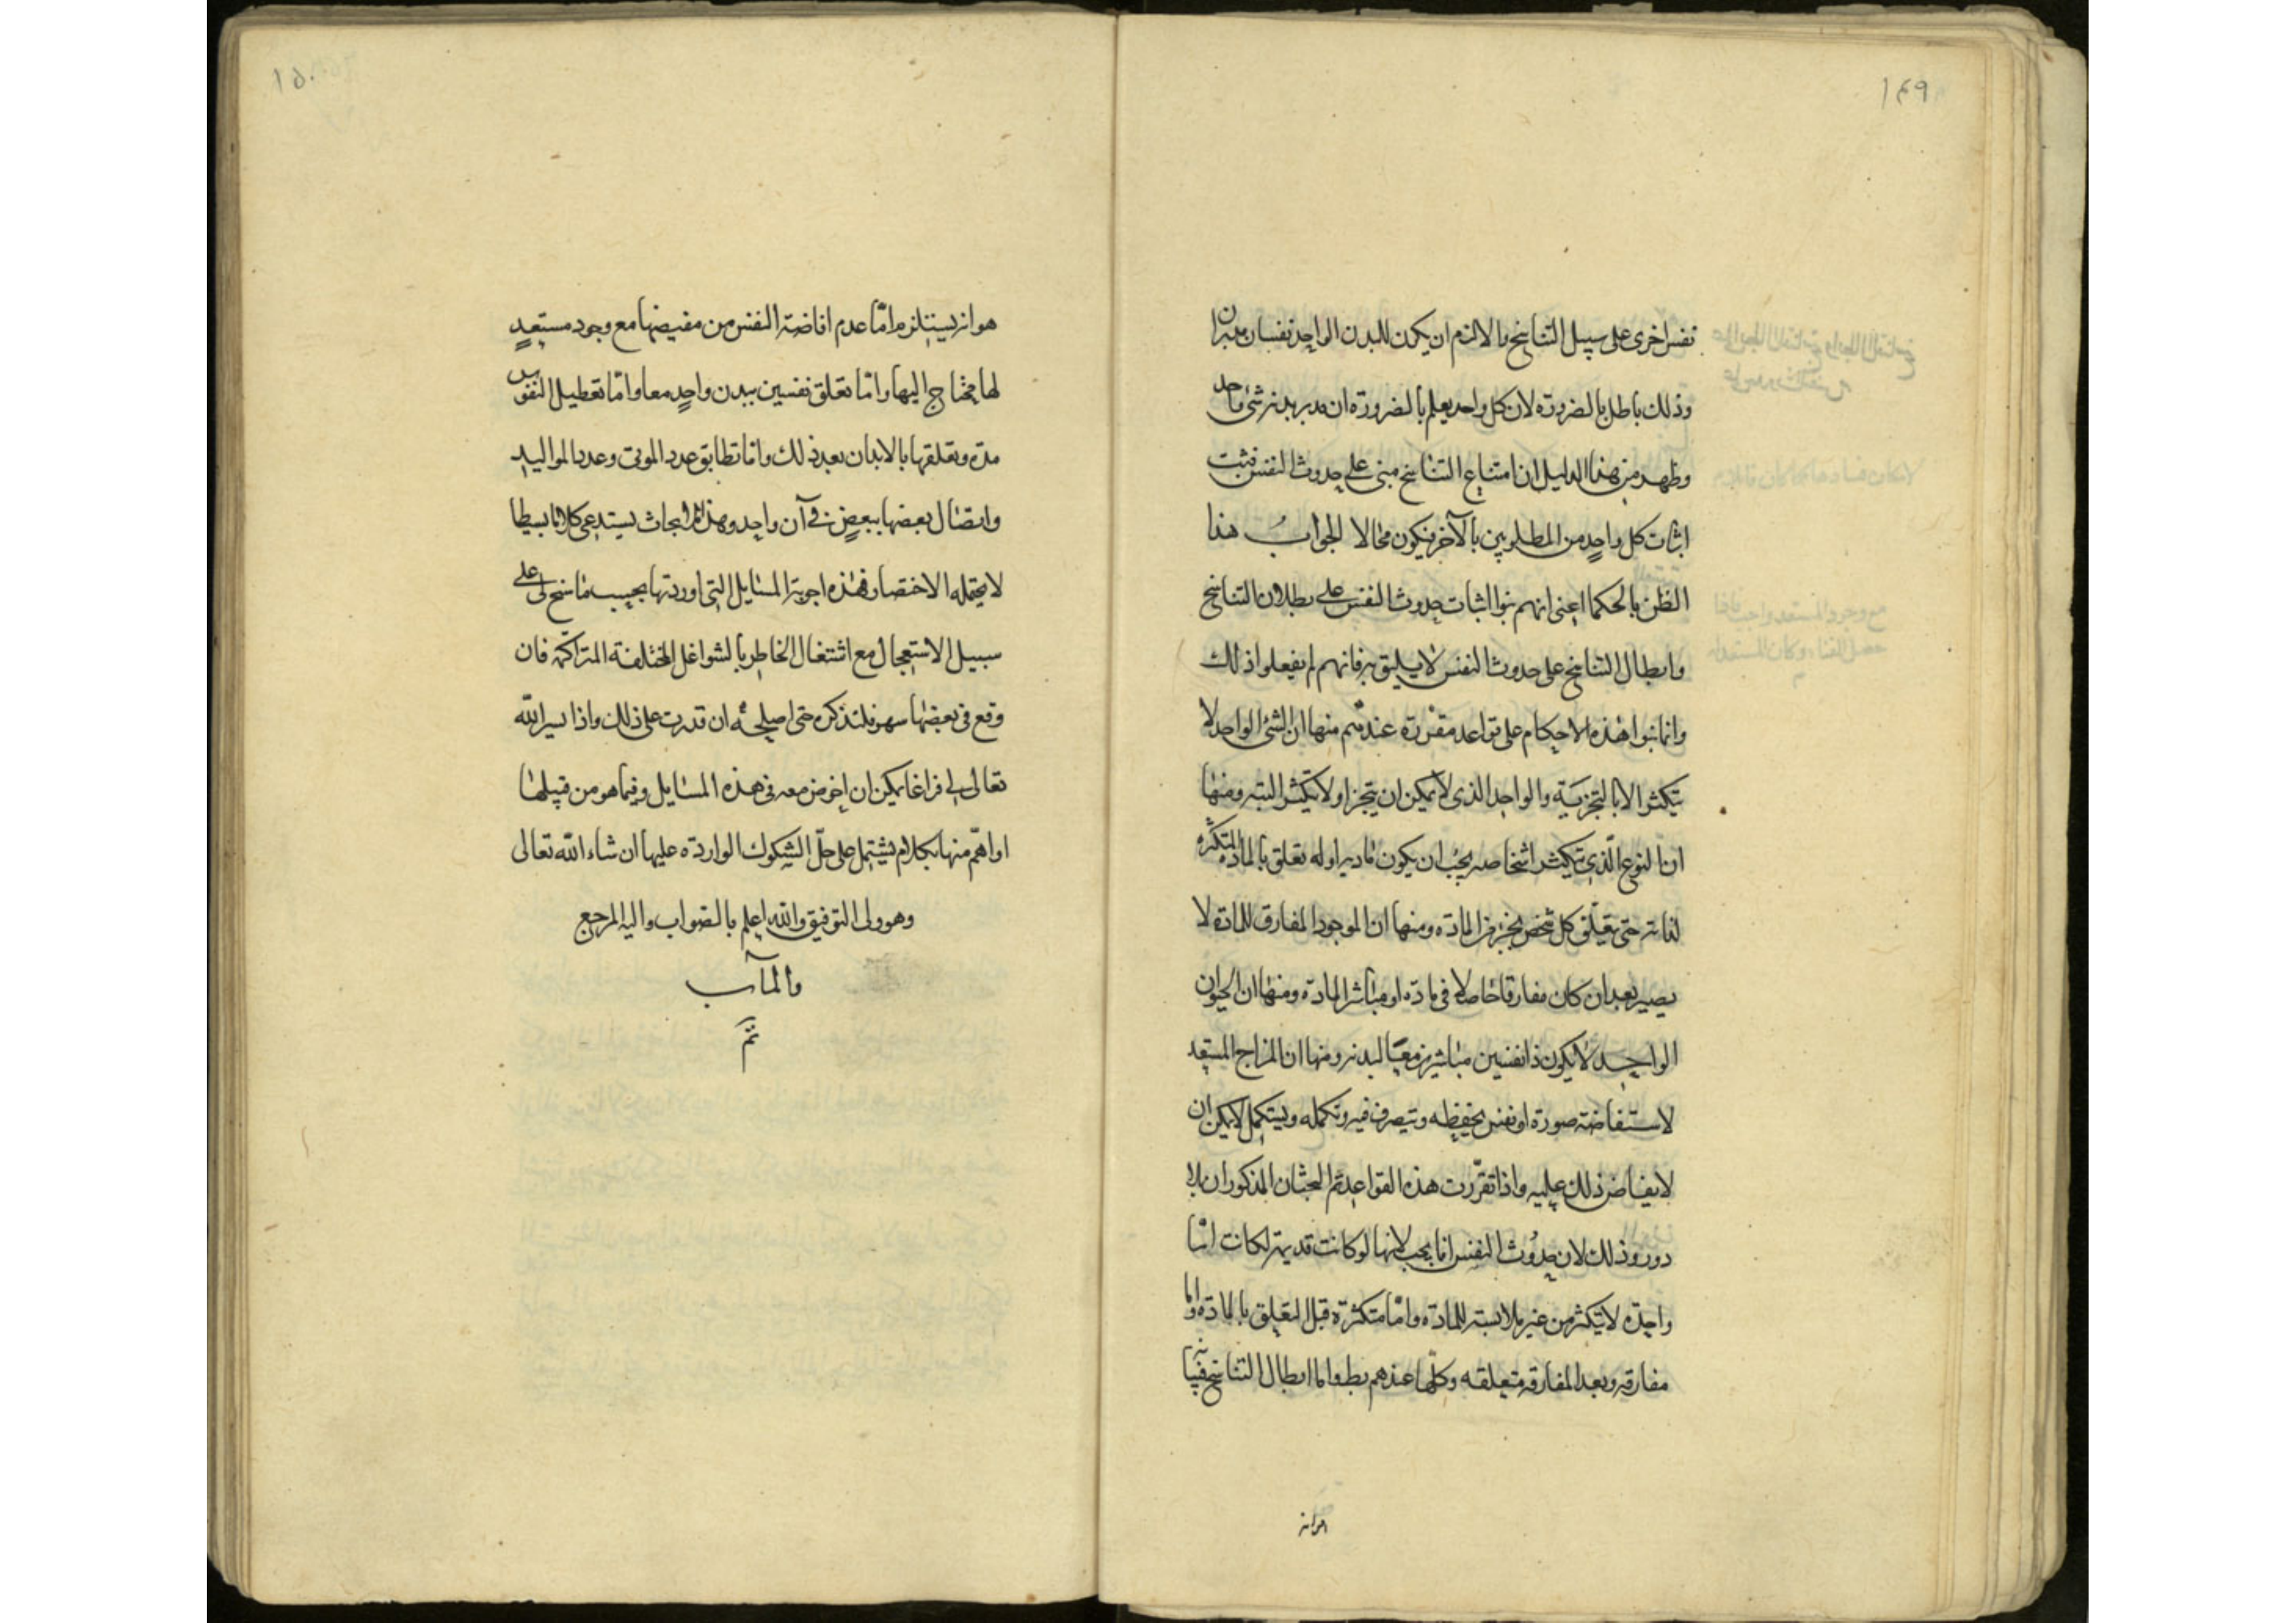 ١٤٩
نفس اخرى على سبيل التناسخ والا لزم ان يكون للبدن الواحد نفسان مدبران
وذلك باطل بالضرورة لان كل واحد يعلم بالضرورة ان مدبر بدنه شئ واحد
وظهر من هذا الدليل ان امتناع التناسخ مبنى على حدوث النفس فيثبت
اثبات كل واحدٍ من المطلوبين بالآخر فيكون محالا الجوابُ هذا
الظن بالحكما اعنى انهم بنوا اثبات حدوث النفس على بطلان التناسخ
وابطال التناسخ على حدوث النفس لا يليق به فانهم لم يفعلوا ذلك
وانما بنوا هذه الاحكام على قواعد مقررة عندهم منها ان الشئ الواحد لا
يتكثر الا بالتجزية والواحد الذى لا يمكن ان يتجزا ولا يتكثر البته ومنها
ان النوع الّذى يتكثر اشخاصه يجب ان يكون ماديا وله تعلق بالمادة المتكثرة
لذاته حتى يتعلّق كل شخص بجزء من المادّه ومنها ان الموجود المفارق للمادة لا
يصير بعد ان كان مفارقا حاصلا فى مادّه او مباشرا لمادّه ومنها ان الحيوان
الواحد لا يكون ذا نفسين مباشرين معيّا لبدنه ومنها ان المزاج المستعد
لاستفاضة صورة او نفس يحفظه وتيصرف فيه وتكمله ويستكمل لا يمكن ان
لا يفاض ذلك عليه واذا تقرّرت هذه القواعد تم المبحثان المذكوران بلا
دور وذلك لان حدُوث النفس انما يجب لانها لو كانت قديمة لكانت امّا
واحدة لا يتكثر من غير ملابسته للمادّه وامّا متكثرة قبل التعلق بالمادّه واما
مفارقه وبعد المفارقه متعلقه وكلّها عندهم بطـ واما ابطال التناسخ فبيانه
هو انه
١٥٠
هو انه يستلزم امّا عدم افاضة النفس من مفيضها مع وجود مستعدٍ
لها محتاج اليها وامّا تعلق نفسين ببدن واحدٍ معا وامّا تعطيل النفوس
مدة وتعلقها بالابدان بعد ذلك واما تطابق عدد الموتى وعدد المواليد
واتصال بعضها ببعضٍ فى آن واحد وهذه ابحاث يستدعى كلاما بسيطا
لا يحتمله الاختصار فهذه اجوبة المسايل التى اوردتها بحسب ما سنح لى على
سبيل الاستعجال مع اشتغال الخاطر بالشواغل المختلفة المتراكمة فان
وقع فى بعضها سهو فلتذكره حتى اصلحه ان قدرت على ذلك واذا يسر اللّه
تعالى لى فراغا يمكن ان اخوض معه فى هذه المسايل وفيما هو من قبيلها
او اهمّ منها بكلام يشتمل على حلّ الشكوك الواردة عليها ان شاء اللّه تعالى
وهو ولى التوفيق واللّه اعلم بالصواب واليه المرجع
والمآب
تمّ